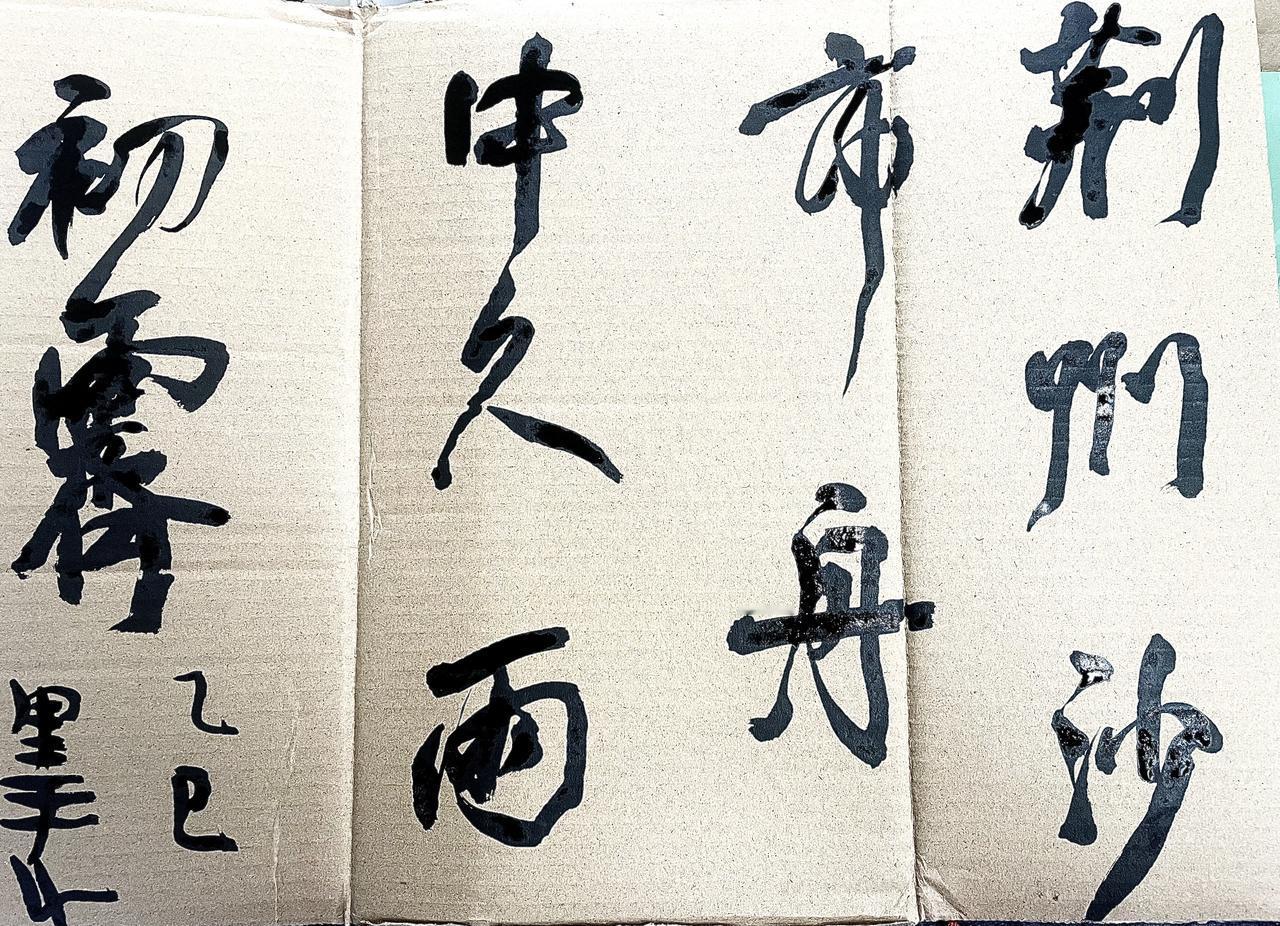 荆州沙
市舟
中久雨
初霁
乙巳